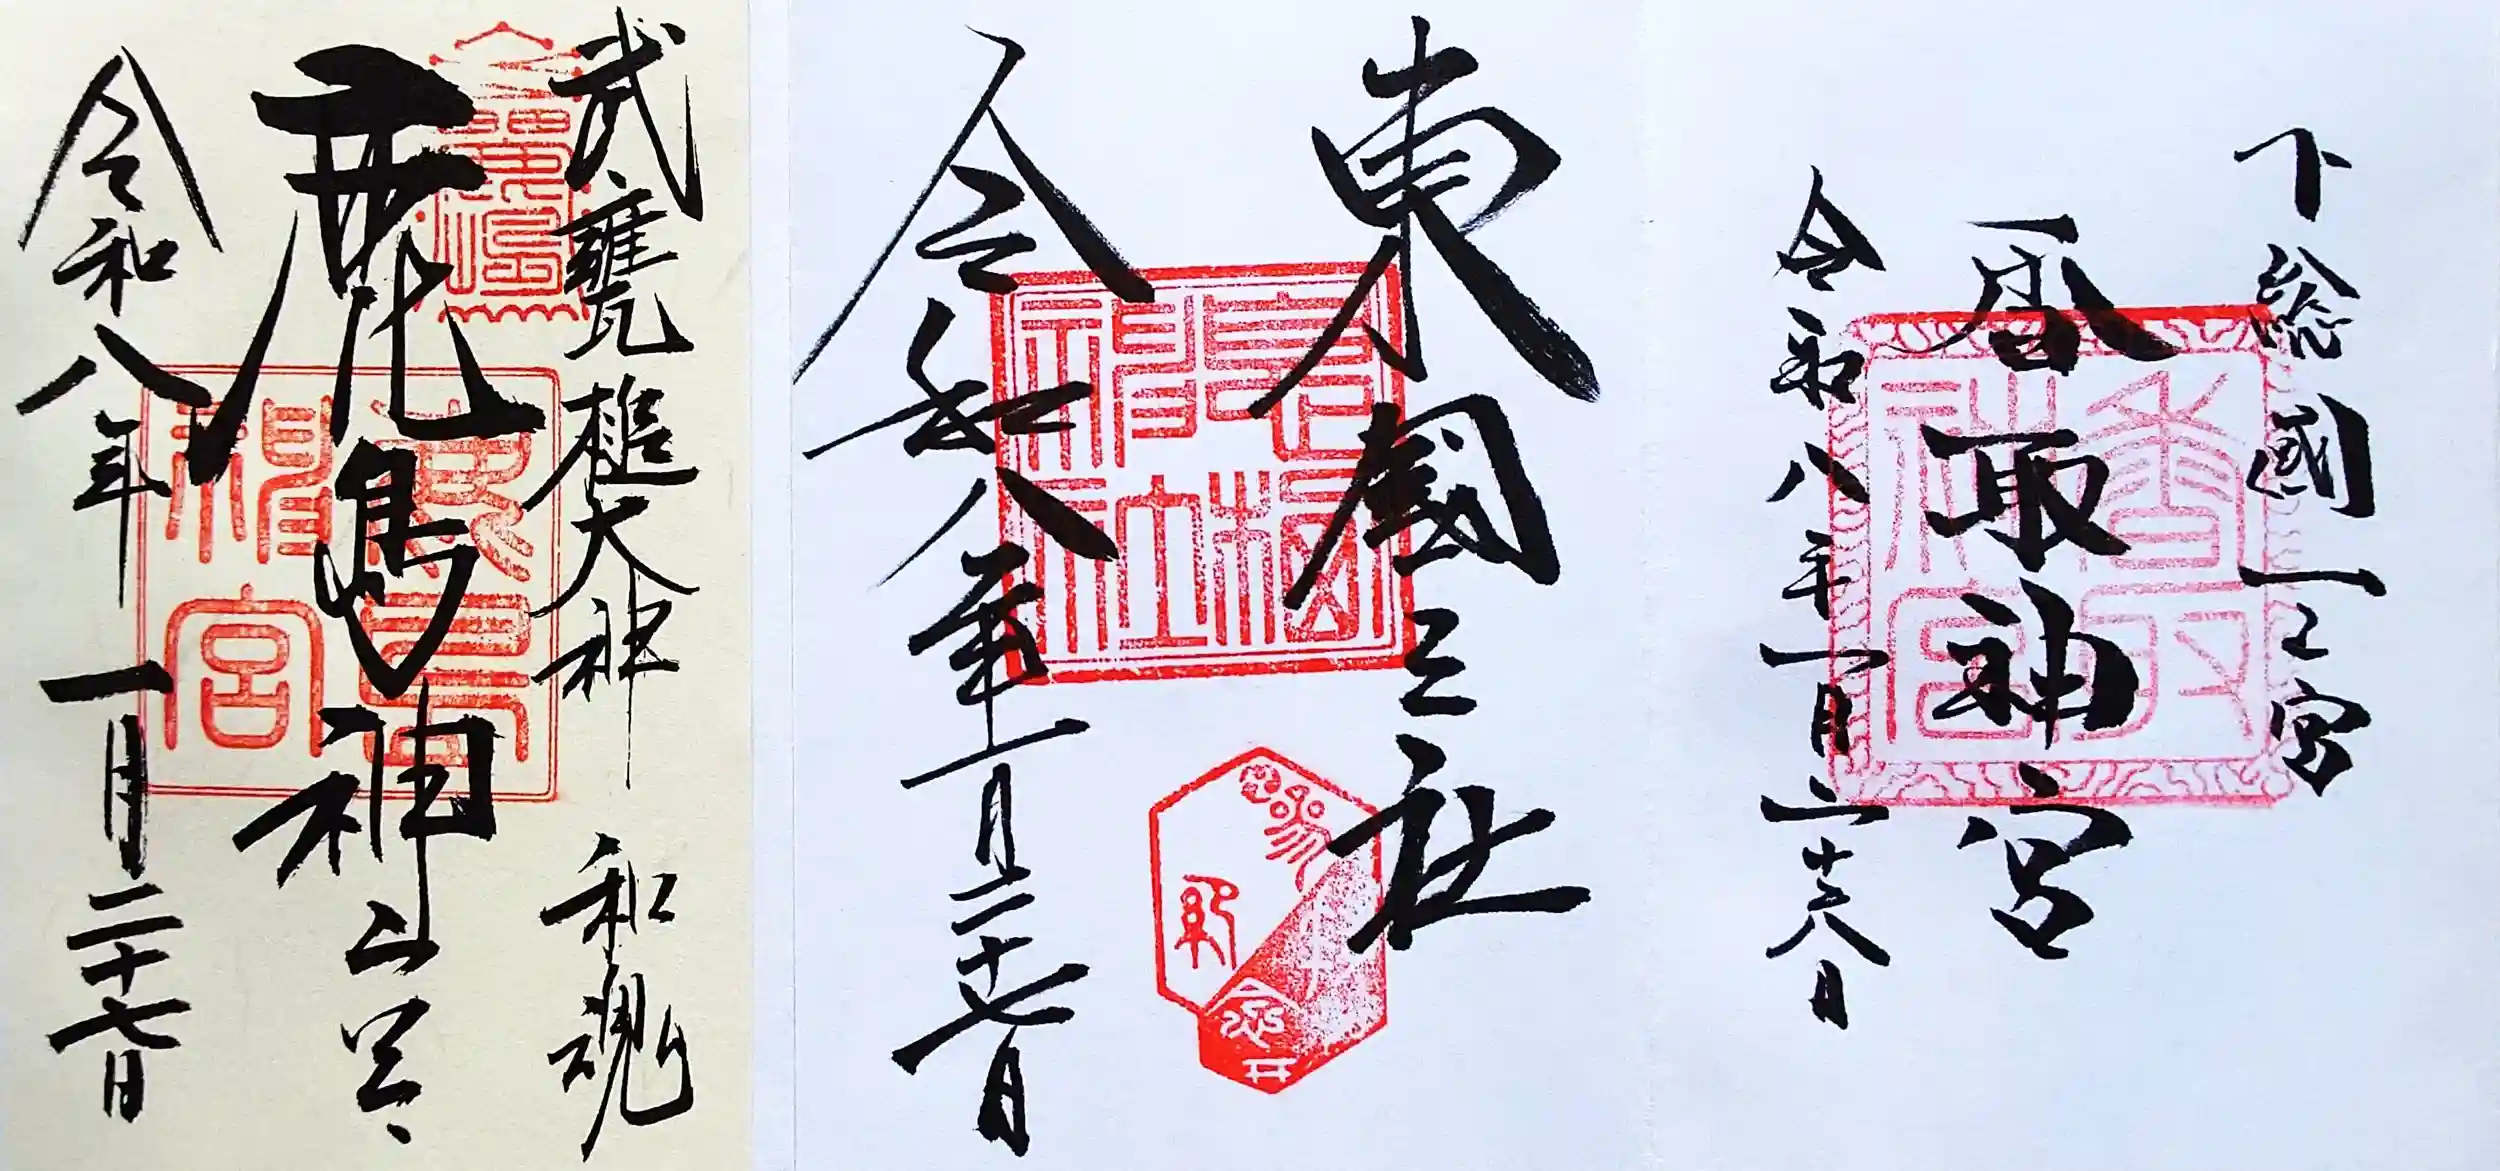 武甕槌大神 和魂
鹿島神宮
鹿島神宮
令和八年 一月二十七日
東國三社
息栖神社
令和八年一月二十七日
下総國一之宮
香取神宮
香取神宮
令和八年一月二十八日